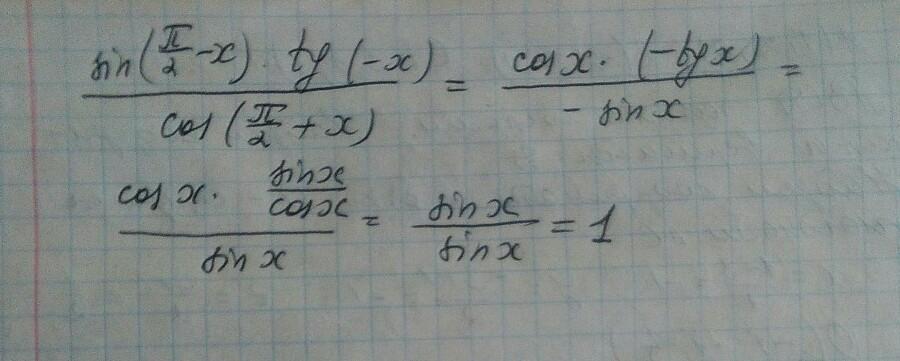 sin(π/2 - x) · tg(-x) / cos(π/2 + x) = cos x · (-tg x) / - sin x =
cos x · sin x / cos x / sin x = sin x / sin x = 1